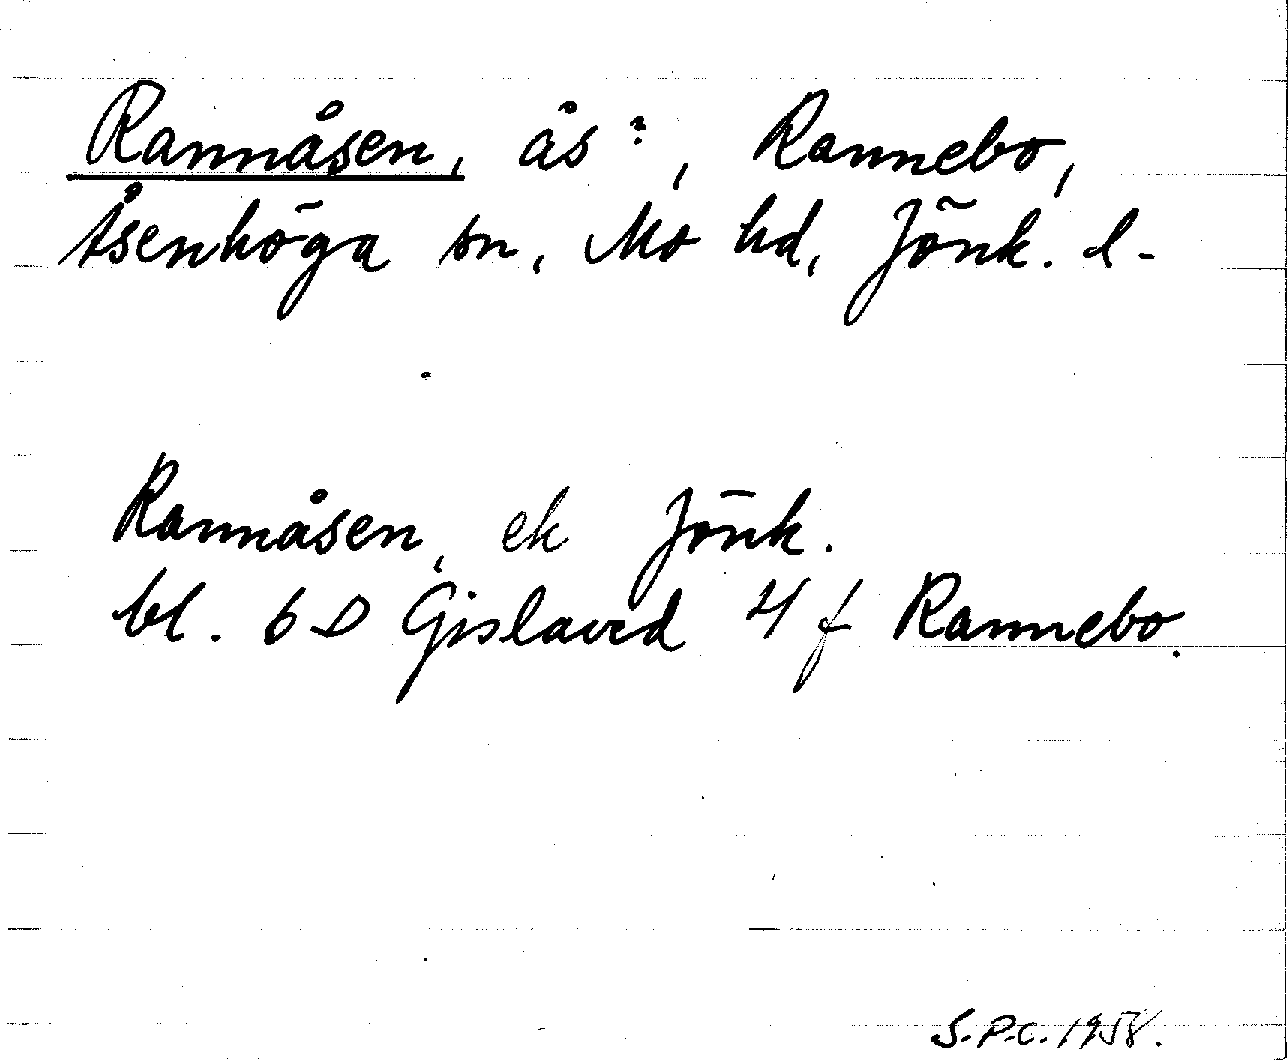 Rannåsen, ås?, Rannebo,
Åsenhöga sn, Mo hd, Jönk. l.
Rannåsen, ek Jönk.
bl. 6D Gislaved 4 f Rannebo.
S.P.C. 1958.